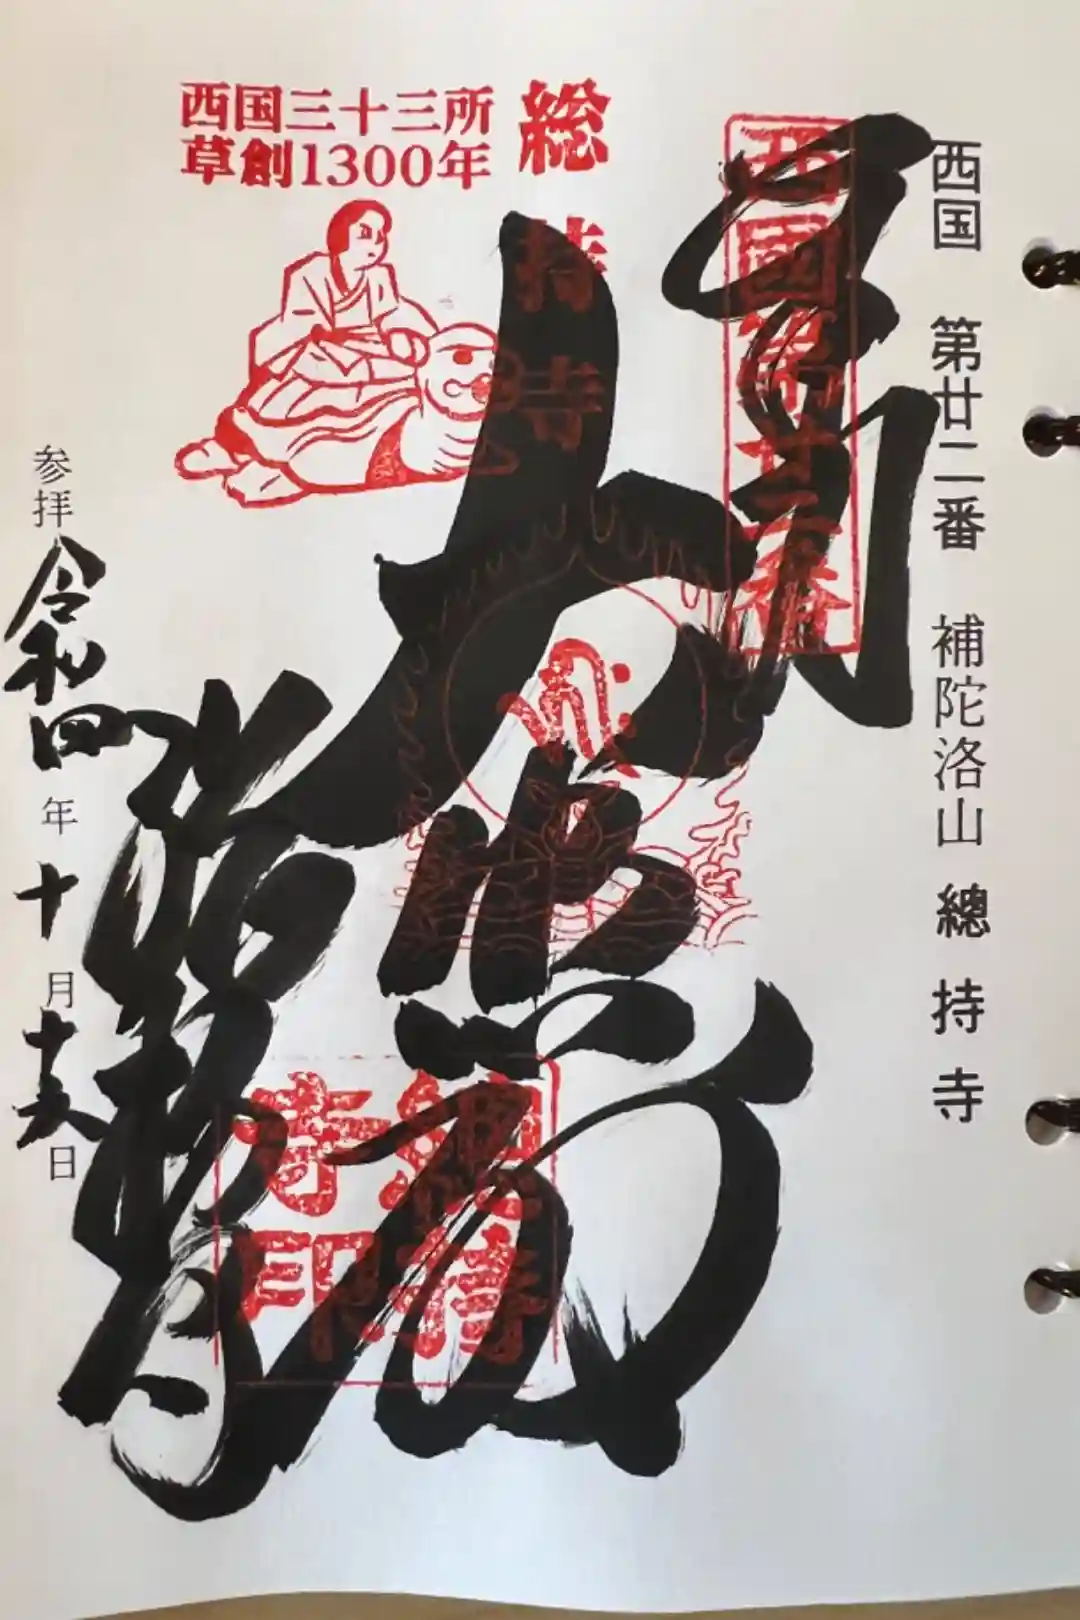 西国 第廿二番 補陀洛山 總持寺
西國第廿二番
総持寺
西国三十三所
草創1300年
大悲閣
総持
寺印
総持寺
参拝 令和四年 十月十五日